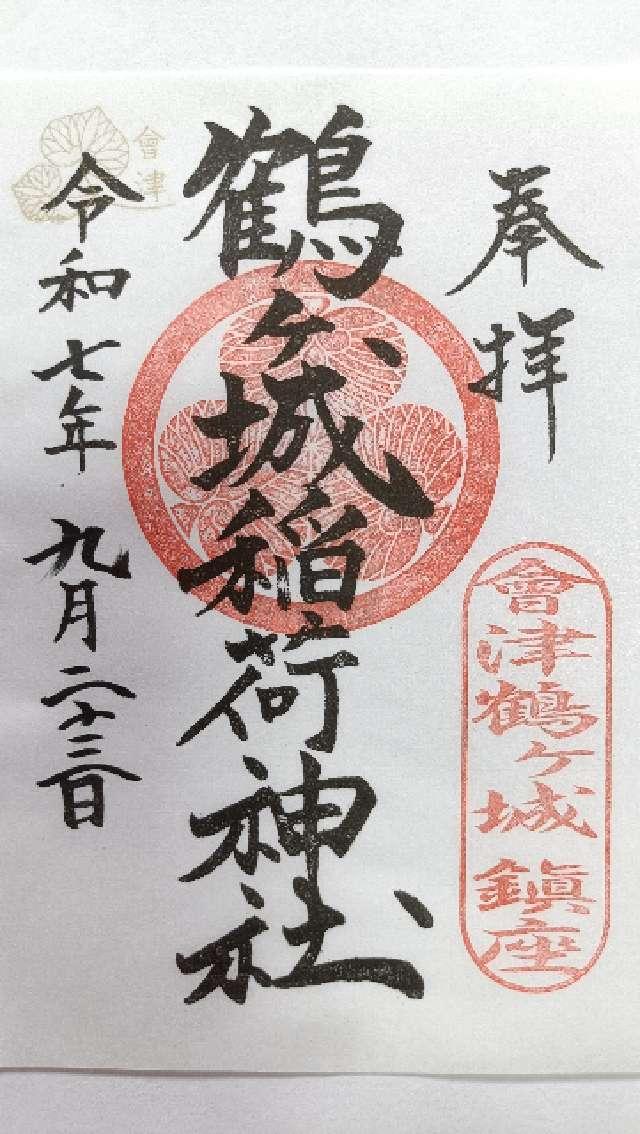 奉拝
會津鶴ヶ城鎮座
鶴ヶ城稲荷神社
令和七年九月二十三日
會津